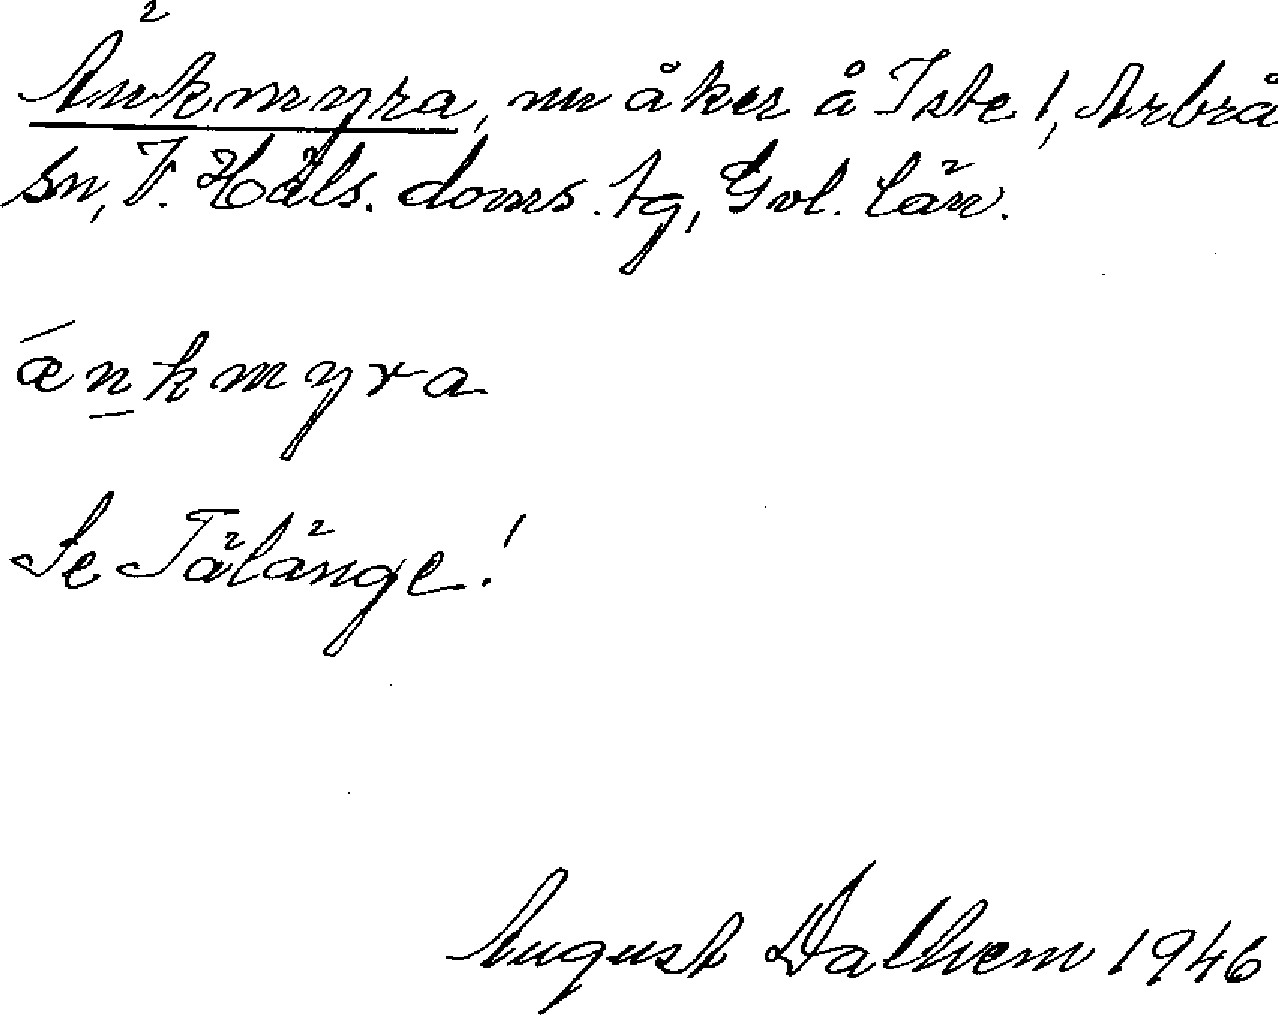 Änkmyra, nu åker å Iste 1, Arbrå
sn, V. Häls. doms. tg, Gvl. län.
ǽn̲kmyra
Se Tälänge!
August Dalhem 1946